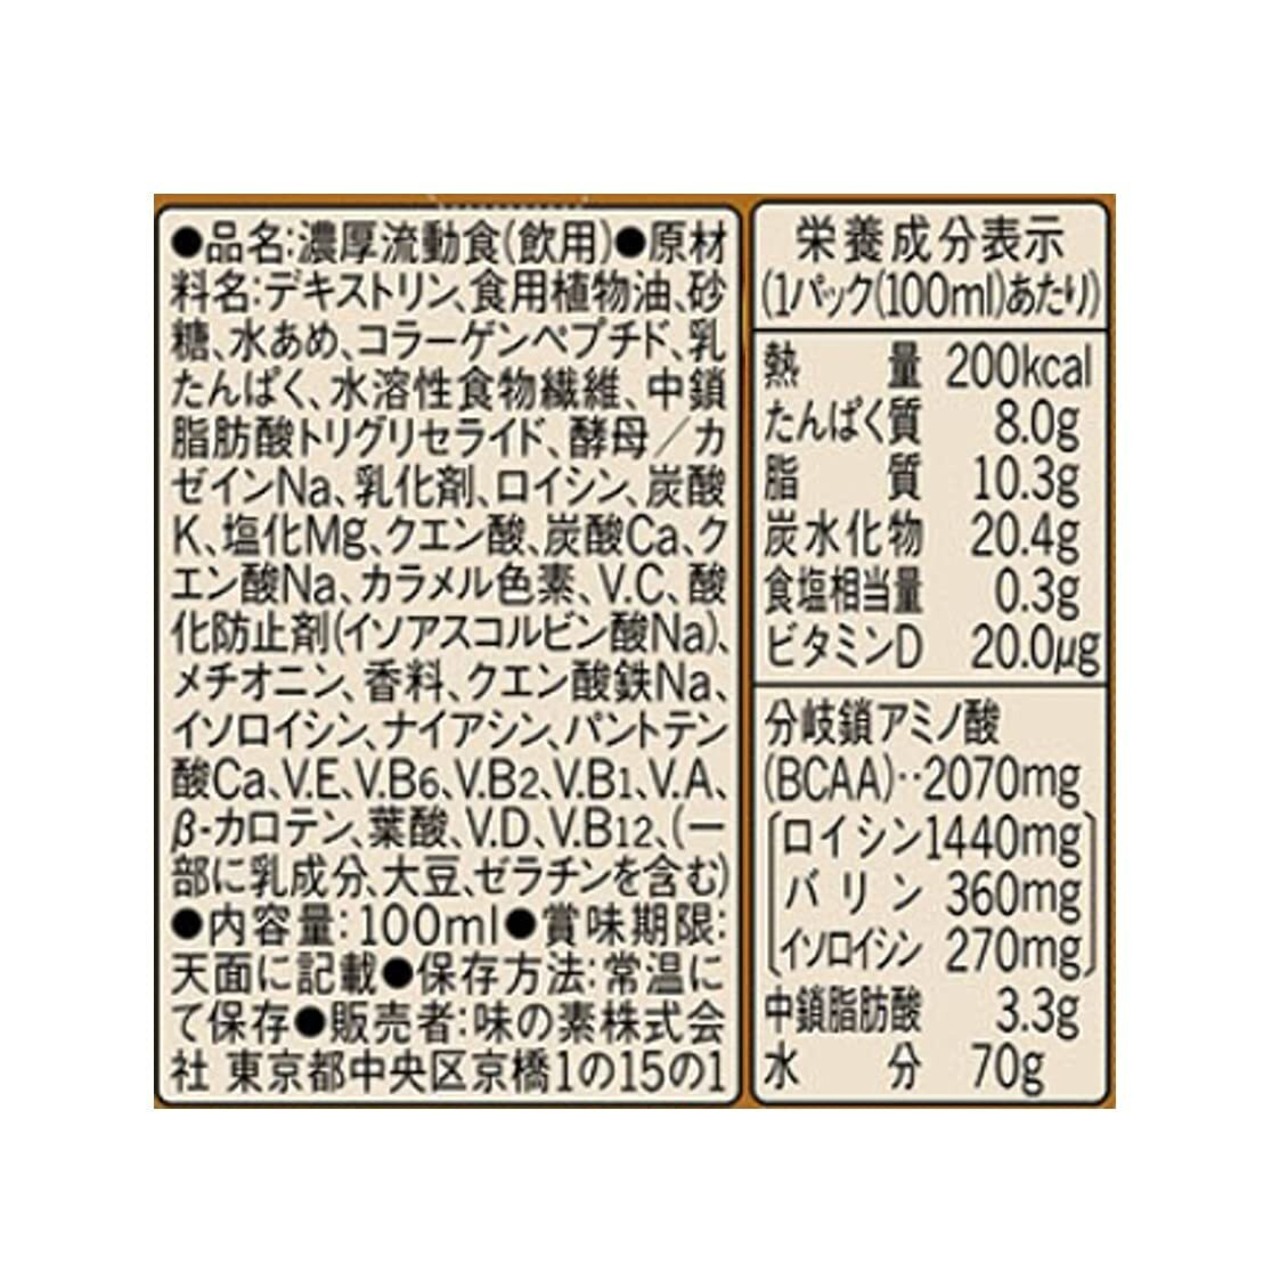 ●品名:濃厚流動食(飲用)●原材
料名:デキストリン、食用植物油、砂
糖、水あめ、コラーゲンペプチド、乳
たんぱく、水溶性食物繊維、中鎖
脂肪酸トリグリセライド、酵母／カ
ゼインNa、乳化剤、ロイシン、炭酸
K、塩化Mg、クエン酸、炭酸Ca、ク
エン酸Na、カラメル色素、V.C、酸
化防止剤(イソアスコルビン酸Na)、
メチオニン、香料、クエン酸鉄Na、
イソロイシン、ナイアシン、パントテン
酸Ca、V.E、V.B6、V.B2、V.B1、V.A、
β-カロテン、葉酸、V.D、V.B12、(一
部に乳成分、大豆、ゼラチンを含む)
●内容量:100ml●賞味期限:
天面に記載●保存方法:常温に
て保存●販売者:味の素株式会
社 東京都中央区京橋1の15の1
栄養成分表示
(1パック(100ml)あたり)
熱量 200kcal
たんぱく質 8.0g
脂質 10.3g
炭水化物 20.4g
食塩相当量 0.3g
ビタミンD 20.0μg
分岐鎖アミノ酸
(BCAA)‥2070mg
ロイシン1440mg
バリン 360mg
イソロイシン 270mg
中鎖脂肪酸 3.3g
水分 70g